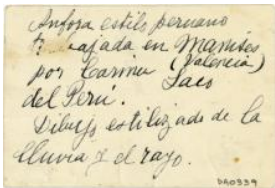 Anfora estilo peruano
trabajada en Manises
por Carmen (Valencia)
Saco
del Perú.
Dibujo estilizado de la
lluvia y el rayo.
DA0339